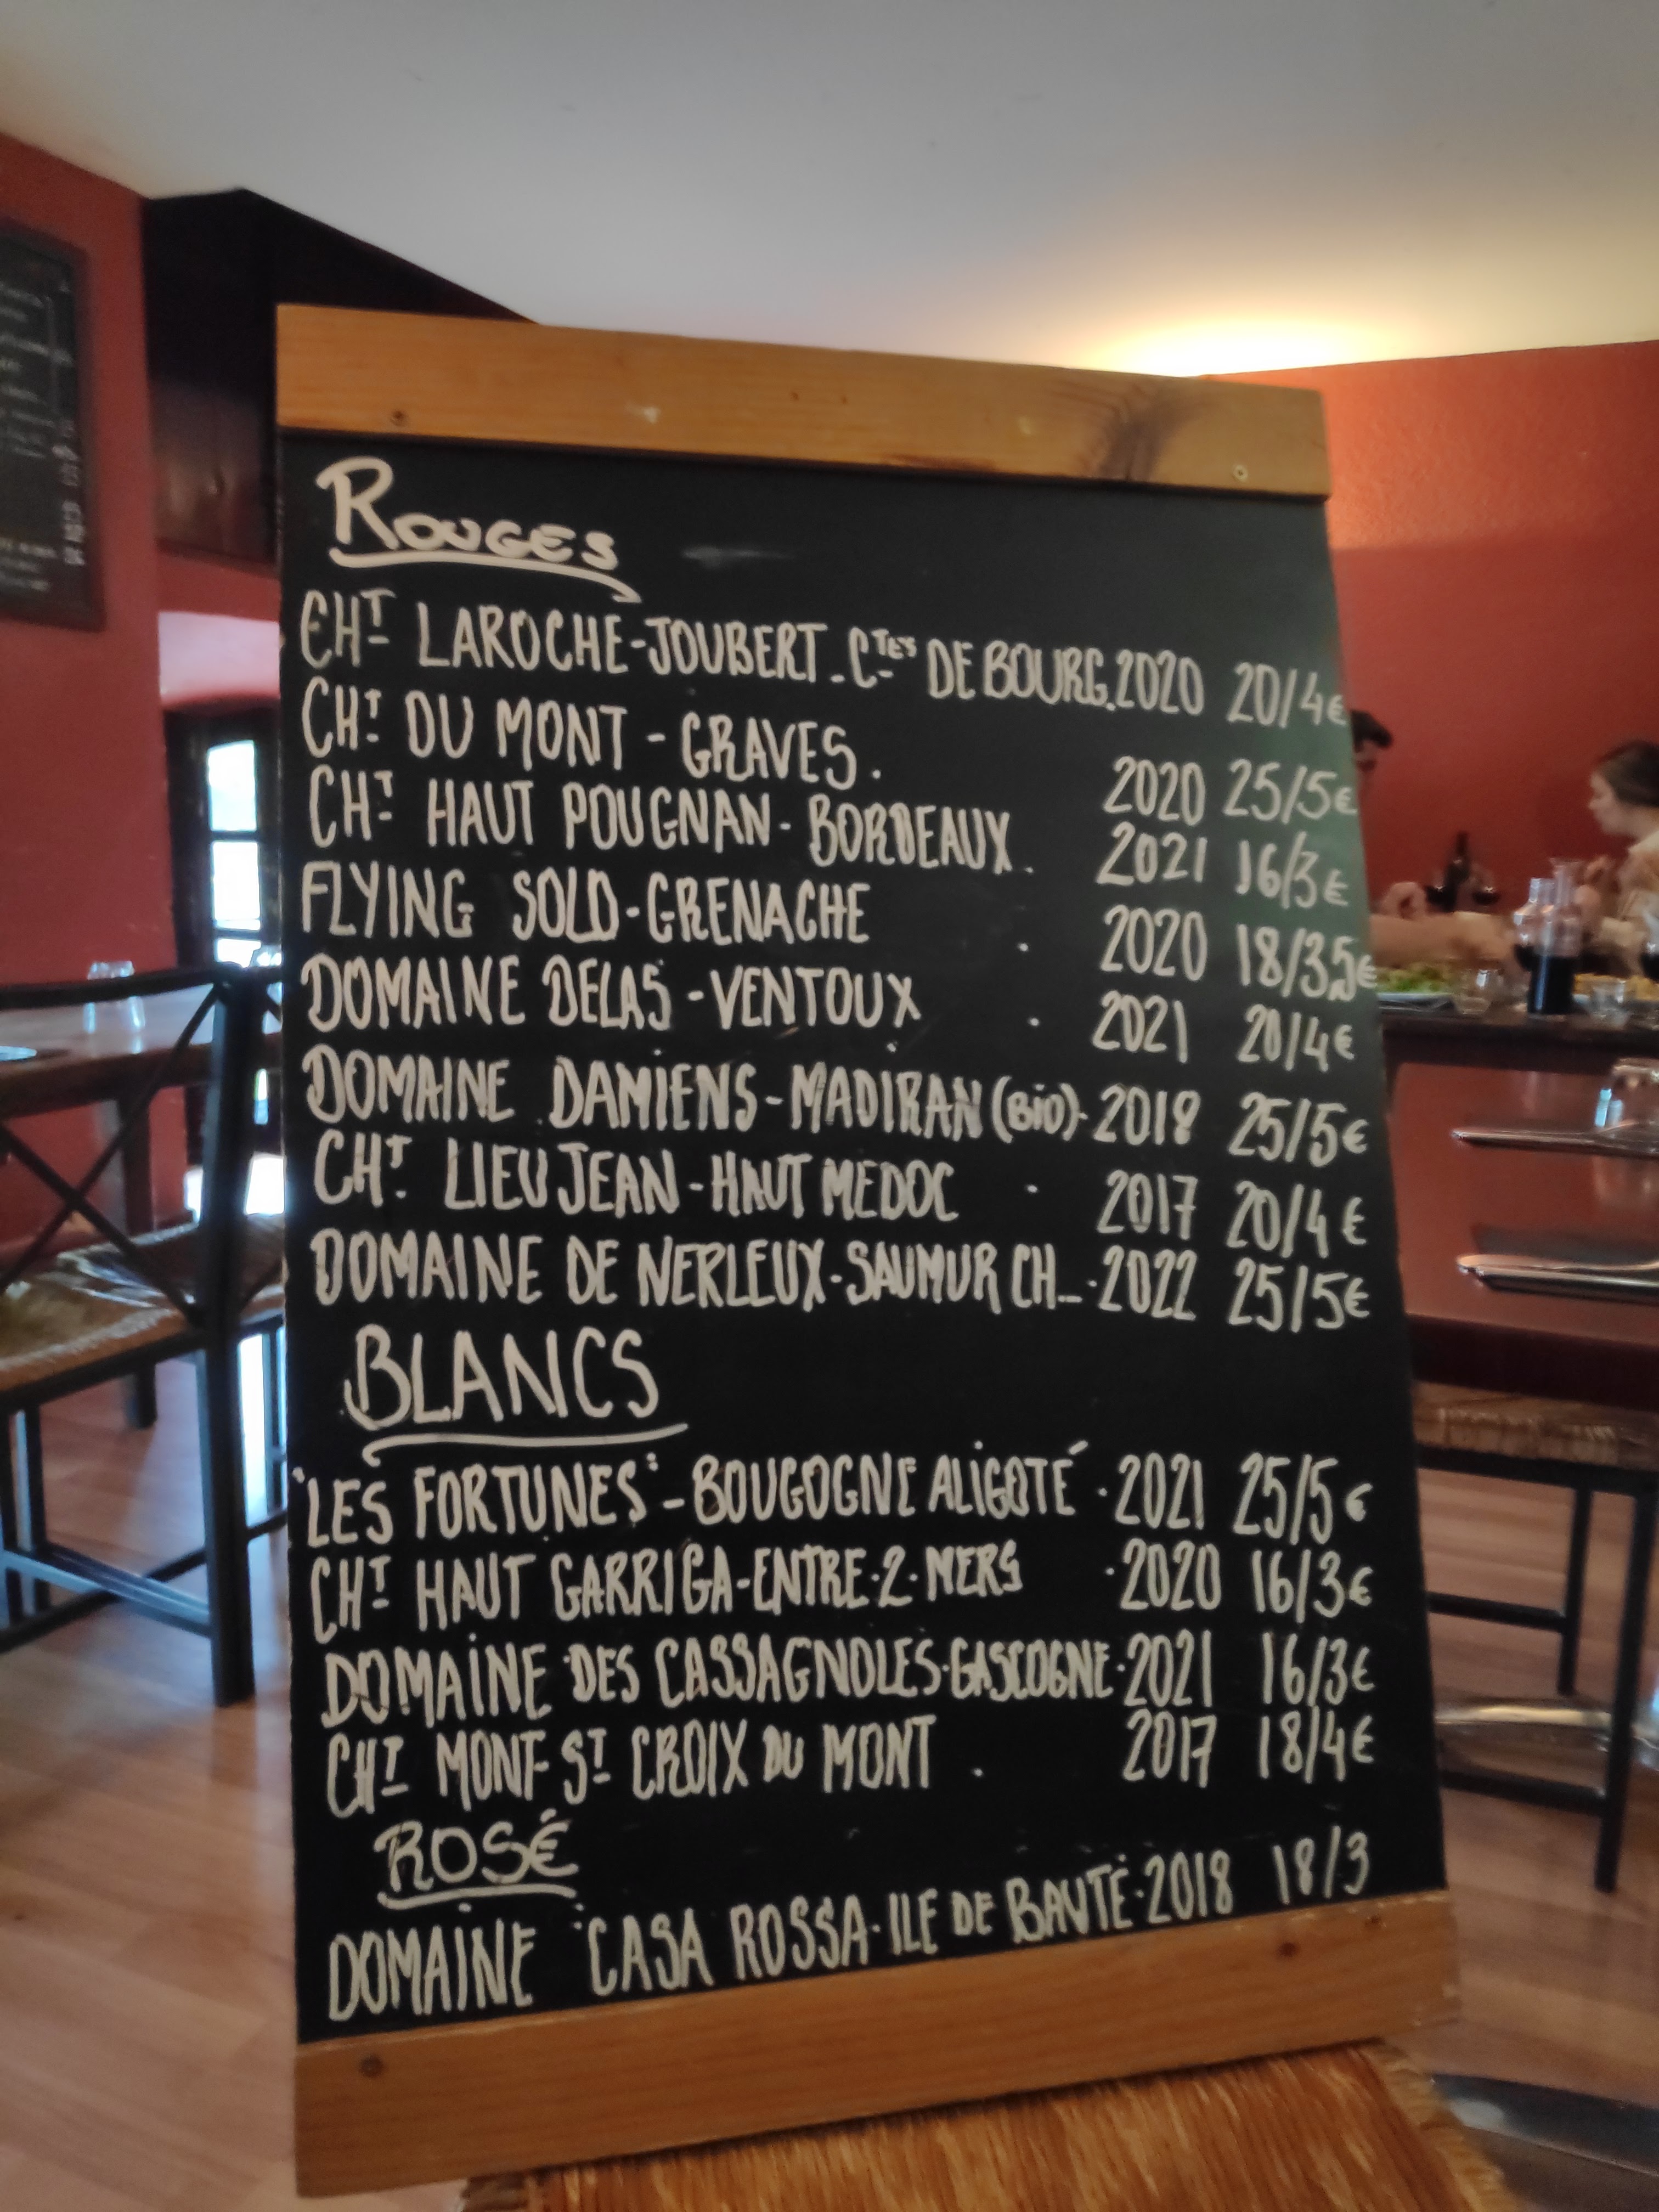 ROUGES
CHT LAROCHE-JOUBERT - CTES DE BOURG. 2020 20/4€
CHT DU MONT - GRAVES. 2020 25/5€
CHT HAUT POUGNAN - BORDEAUX. 2021 16/3€
FLYING SOLO - GRENACHE . 2020 18/3,5€
DOMAINE DELAS - VENTOUX . 2021 20/4€
DOMAINE DAMIENS - MADIRAN (BIO) - 2018 25/5€
CHT LIEU JEAN - HAUT MEDOC . 2017 20/4€
DOMAINE DE NERLEUX - SAUMUR CH_. 2022 25/5€
BLANCS
"LES FORTUNES" - BOUGOGNE ALIGOTÉ . 2021 25/5€
CHT HAUT GARRIGA - ENTRE . 2 . MERS . 2020 16/3€
DOMAINE DES CASSAGNOLES . GASCOGNE . 2021 16/3€
CHT MONT ST CROIX DU MONT . 2017 18/4€
ROSÉ
DOMAINE CASA ROSSA . ILE DE BAUTÉ . 2018 18/3